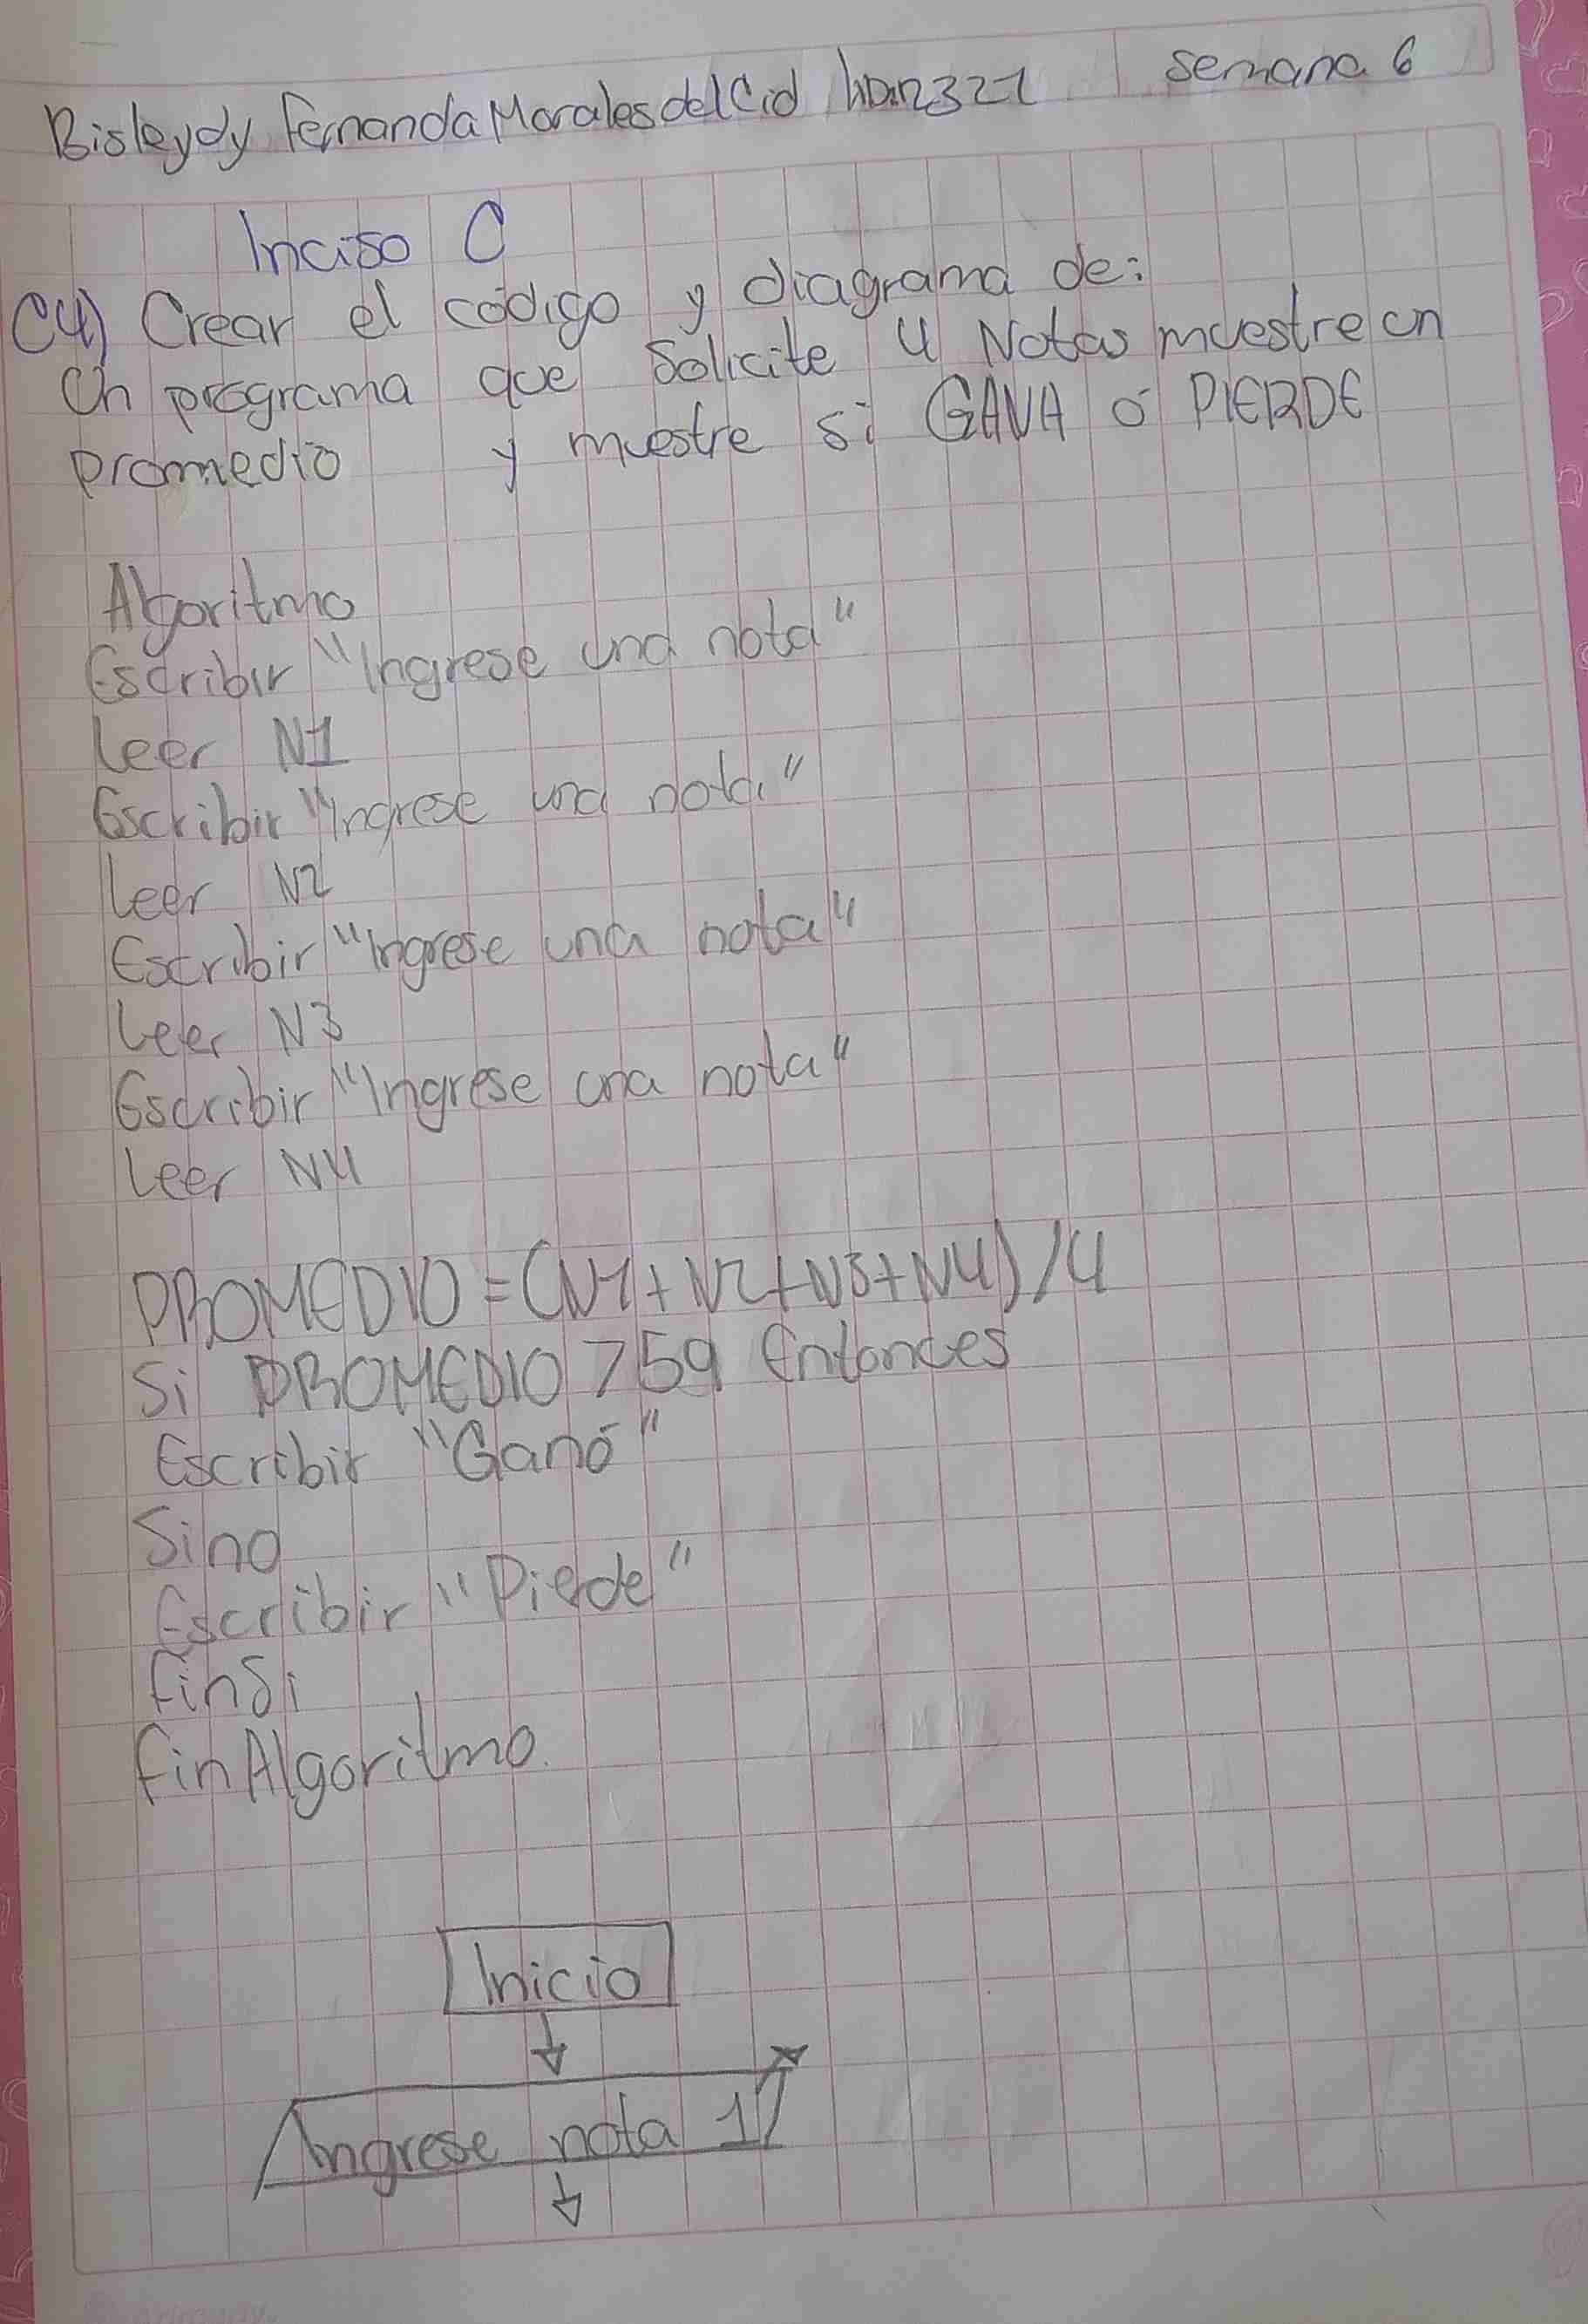 Bisleydy Fernanda Morales del Cid
semana 6
Inciso C
C4) Crear el código y diagrama de:
Un programa que Solicite 4 Notas muestre un
promedio y muestre si GANA ó PIERDE
Algoritmo
Escribir "Ingrese una nota"
Leer N1
Escribir "Ingrese una nota"
Leer N2
Escribir "Ingrese una nota"
Leer N3
Escribir "Ingrese una nota"
Leer N4
PROMEDIO = (N1+N2+N3+N4)/4
Si PROMEDIO > 59 Entonces
Escribir "Ganó"
Sino
Escribir "Pierde"
FinSi
FinAlgoritmo.
Inicio
Ingrese nota 1